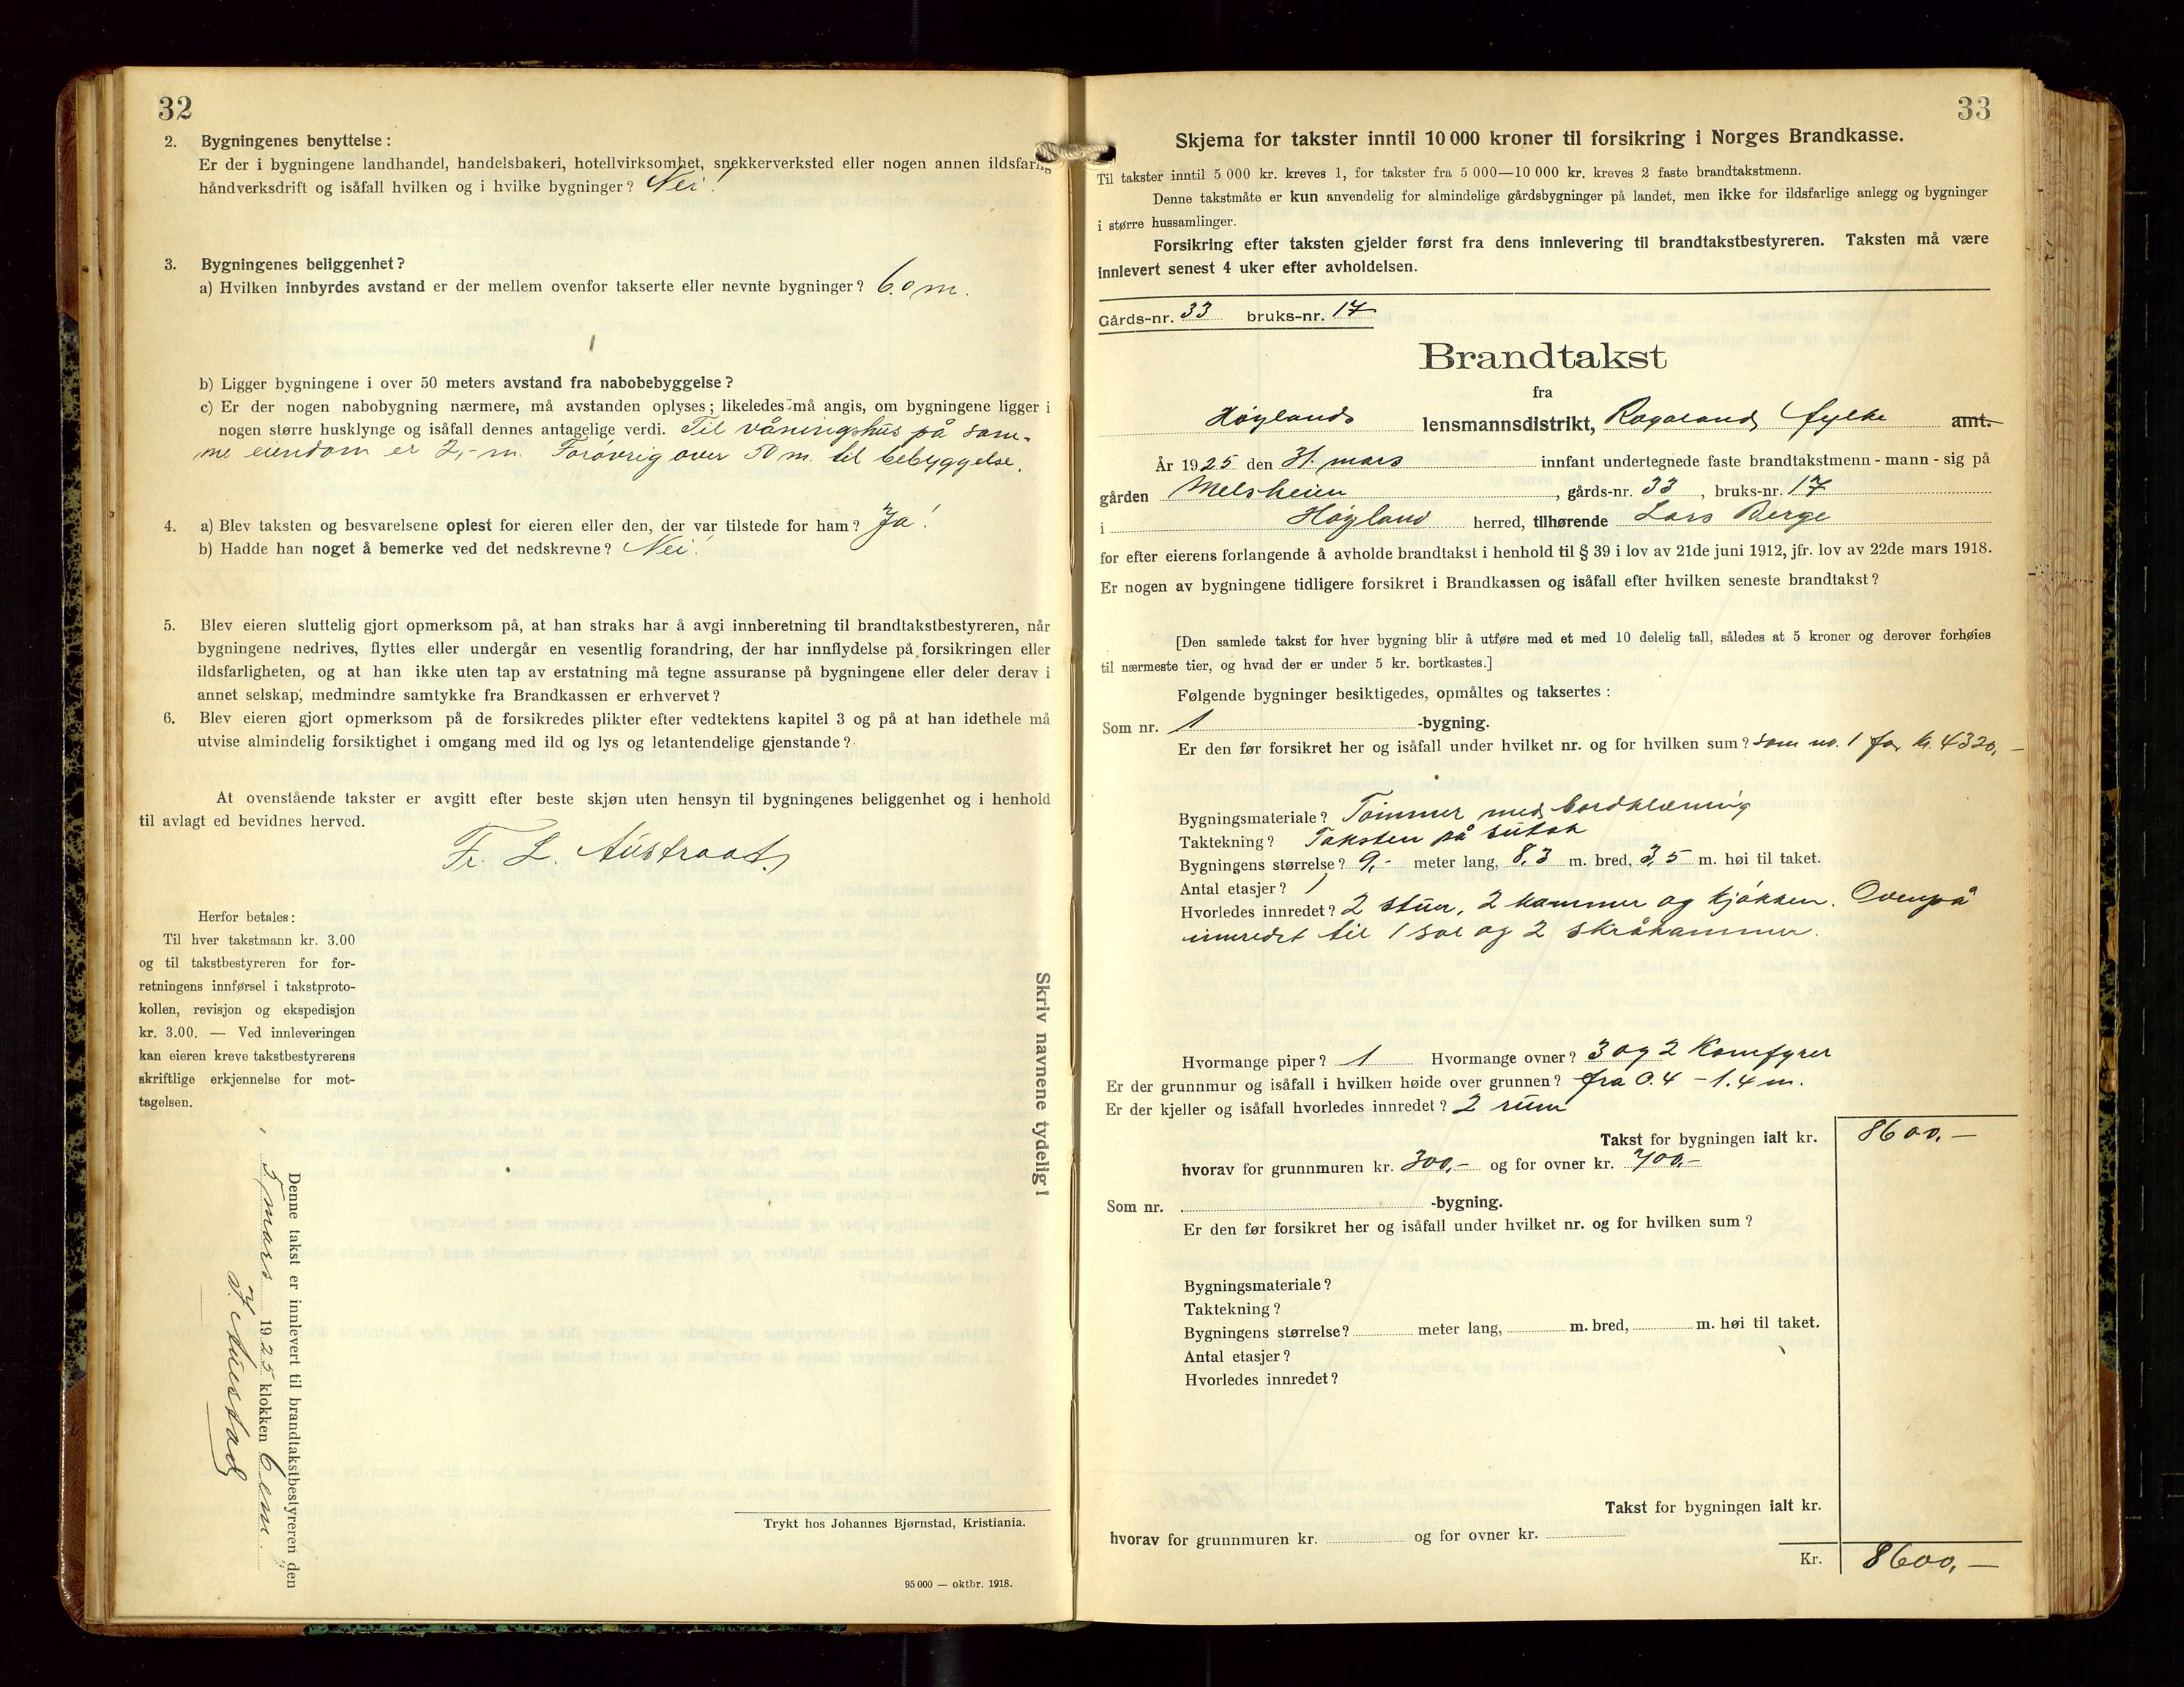 32
2. Bygningenes benyttelse :
Er der i bygningene landhandel, handelsbakeri, hotellvirksomhet, snekkerverksted eller nogen annen ildsfarlig
håndverksdrift og isåfall hvilken og i hvilke bygninger? Nei!
3. Bygningenes beliggenhet?
a) Hvilken innbyrdes avstand er der mellem ovenfor takserte eller nevnte bygninger? 6.0 m.
b) Ligger bygningene i over 50 meters avstand fra nabobebyggelse?
c) Er der nogen nabobygning nærmere, må avstanden oplyses; likeledes må angis, om bygningene ligger i
nogen større husklynge og isåfall dennes antagelige verdi. Til våningshus på sam-
me eiendom er 2,- m. Forøvrig over 50 m. til bebyggelse.
4. a) Blev taksten og besvarelsene oplest for eieren eller den, der var tilstede for ham? Ja!
b) Hadde han noget å bemerke ved det nedskrevne? Nei!
5. Blev eieren sluttelig gjort opmerksom på, at han straks har å avgi innberetning til brandtakstbestyreren, når
bygningene nedrives, flyttes eller undergår en vesentlig forandring, der har innflydelse på forsikringen eller
ildsfarligheten, og at han ikke uten tap av erstatning må tegne assuranse på bygningene eller deler derav i
annet selskap, medmindre samtykke fra Brandkassen er erhvervet?
6. Blev eieren gjort opmerksom på de forsikredes plikter efter vedtektens kapitel 3 og på at han idethele må
utvise almindelig forsiktighet i omgang med ild og lys og letantendelige gjenstande?
At ovenstående takster er avgitt efter beste skjøn uten hensyn til bygningenes beliggenhet og i henhold
til avlagt ed bevidnes herved.
Fr. L. Austraat
Herfor betales:
Til hver takstmann kr. 3.00
og til takstbestyreren for for-
retningens innførsel i takstproto-
kollen, revisjon og ekspedisjon
kr. 3.00. — Ved innleveringen
kan eieren kreve takstbestyrerens
skriftlige erkjennelse for mot-
tagelsen.
Skriv navnene tydelig!
Denne takst er innlevert til brandtakstbestyreren den
mars 1925 klokken 6 em.
Trykt hos Johannes Bjørnstad, Kristiania.
95 000 — oktbr. 1918.
33
Skjema for takster inntil 10 000 kroner til forsikring i Norges Brandkasse.
Til takster inntil 5 000 kr. kreves 1, for takster fra 5 000—10 000 kr. kreves 2 faste brandtakstmenn.
Denne takstmåte er kun anvendelig for almindelige gårdsbygninger på landet, men ikke for ildsfarlige anlegg og bygninger
i større hussamlinger.
Forsikring efter taksten gjelder først fra dens innlevering til brandtakstbestyreren. Taksten må være
innlevert senest 4 uker efter avholdelsen.
Gårds-nr. 33 bruks-nr. 17
Brandtakst
fra
Høylands lensmannsdistrikt, Rogaland fylke amt.
År 1925 den 31. mars innfant undertegnede faste brandtakstmenn - mann - sig på
gården Melsheien, gårds-nr. 33, bruks-nr. 17
i Høyland herred, tilhørende Lars Berge
for efter eierens forlangende å avholde brandtakst i henhold til § 39 i lov av 21de juni 1912, jfr. lov av 22de mars 1918.
Er nogen av bygningene tidligere forsikret i Brandkassen og isåfall efter hvilken seneste brandtakst?
[Den samlede takst for hver bygning blir å utføre med et med 10 delelig tall, således at 5 kroner og derover forhøies
til nærmeste tier, og hvad der er under 5 kr. bortkastes.]
Følgende bygninger besiktigedes, opmåltes og taksertes :
Som nr. 1 -bygning.
Er den før forsikret her og isåfall under hvilket nr. og for hvilken sum? Som no. 1 for kr. 4320,-
Bygningsmateriale? Tømmer med bordklædning
Taktekning? Taksten på sutak
Bygningens størrelse? 9,- meter lang, 8,3 m. bred, 3,5 m. høi til taket.
Antal etasjer? 1
Hvorledes innredet? 2 stuer, 2 kammer og kjøkken. Ovenpå
innredet til 1 sal og 2 skråkammer.
Hvormange piper? 1 Hvormange ovner? 3 og 2 Komfyrer
Er der grunnmur og isåfall i hvilken høide over grunnen? fra 0.4 - 1.4 m.
Er der kjeller og isåfall hvorledes innredet? 2 rum
Takst for bygningen ialt kr. 8600,-
hvorav for grunnmuren kr. 300,- og for ovner kr. 700,-
Som nr. -bygning.
Er den før forsikret her og isåfall under hvilket nr. og for hvilken sum?
Bygningsmateriale?
Taktekning?
Bygningens størrelse? meter lang, m. bred, m. høi til taket.
Antal etasjer?
Hvorledes innredet?
Takst for bygningen ialt kr.
hvorav for grunnmuren kr. og for ovner kr.
Kr. 8600,-